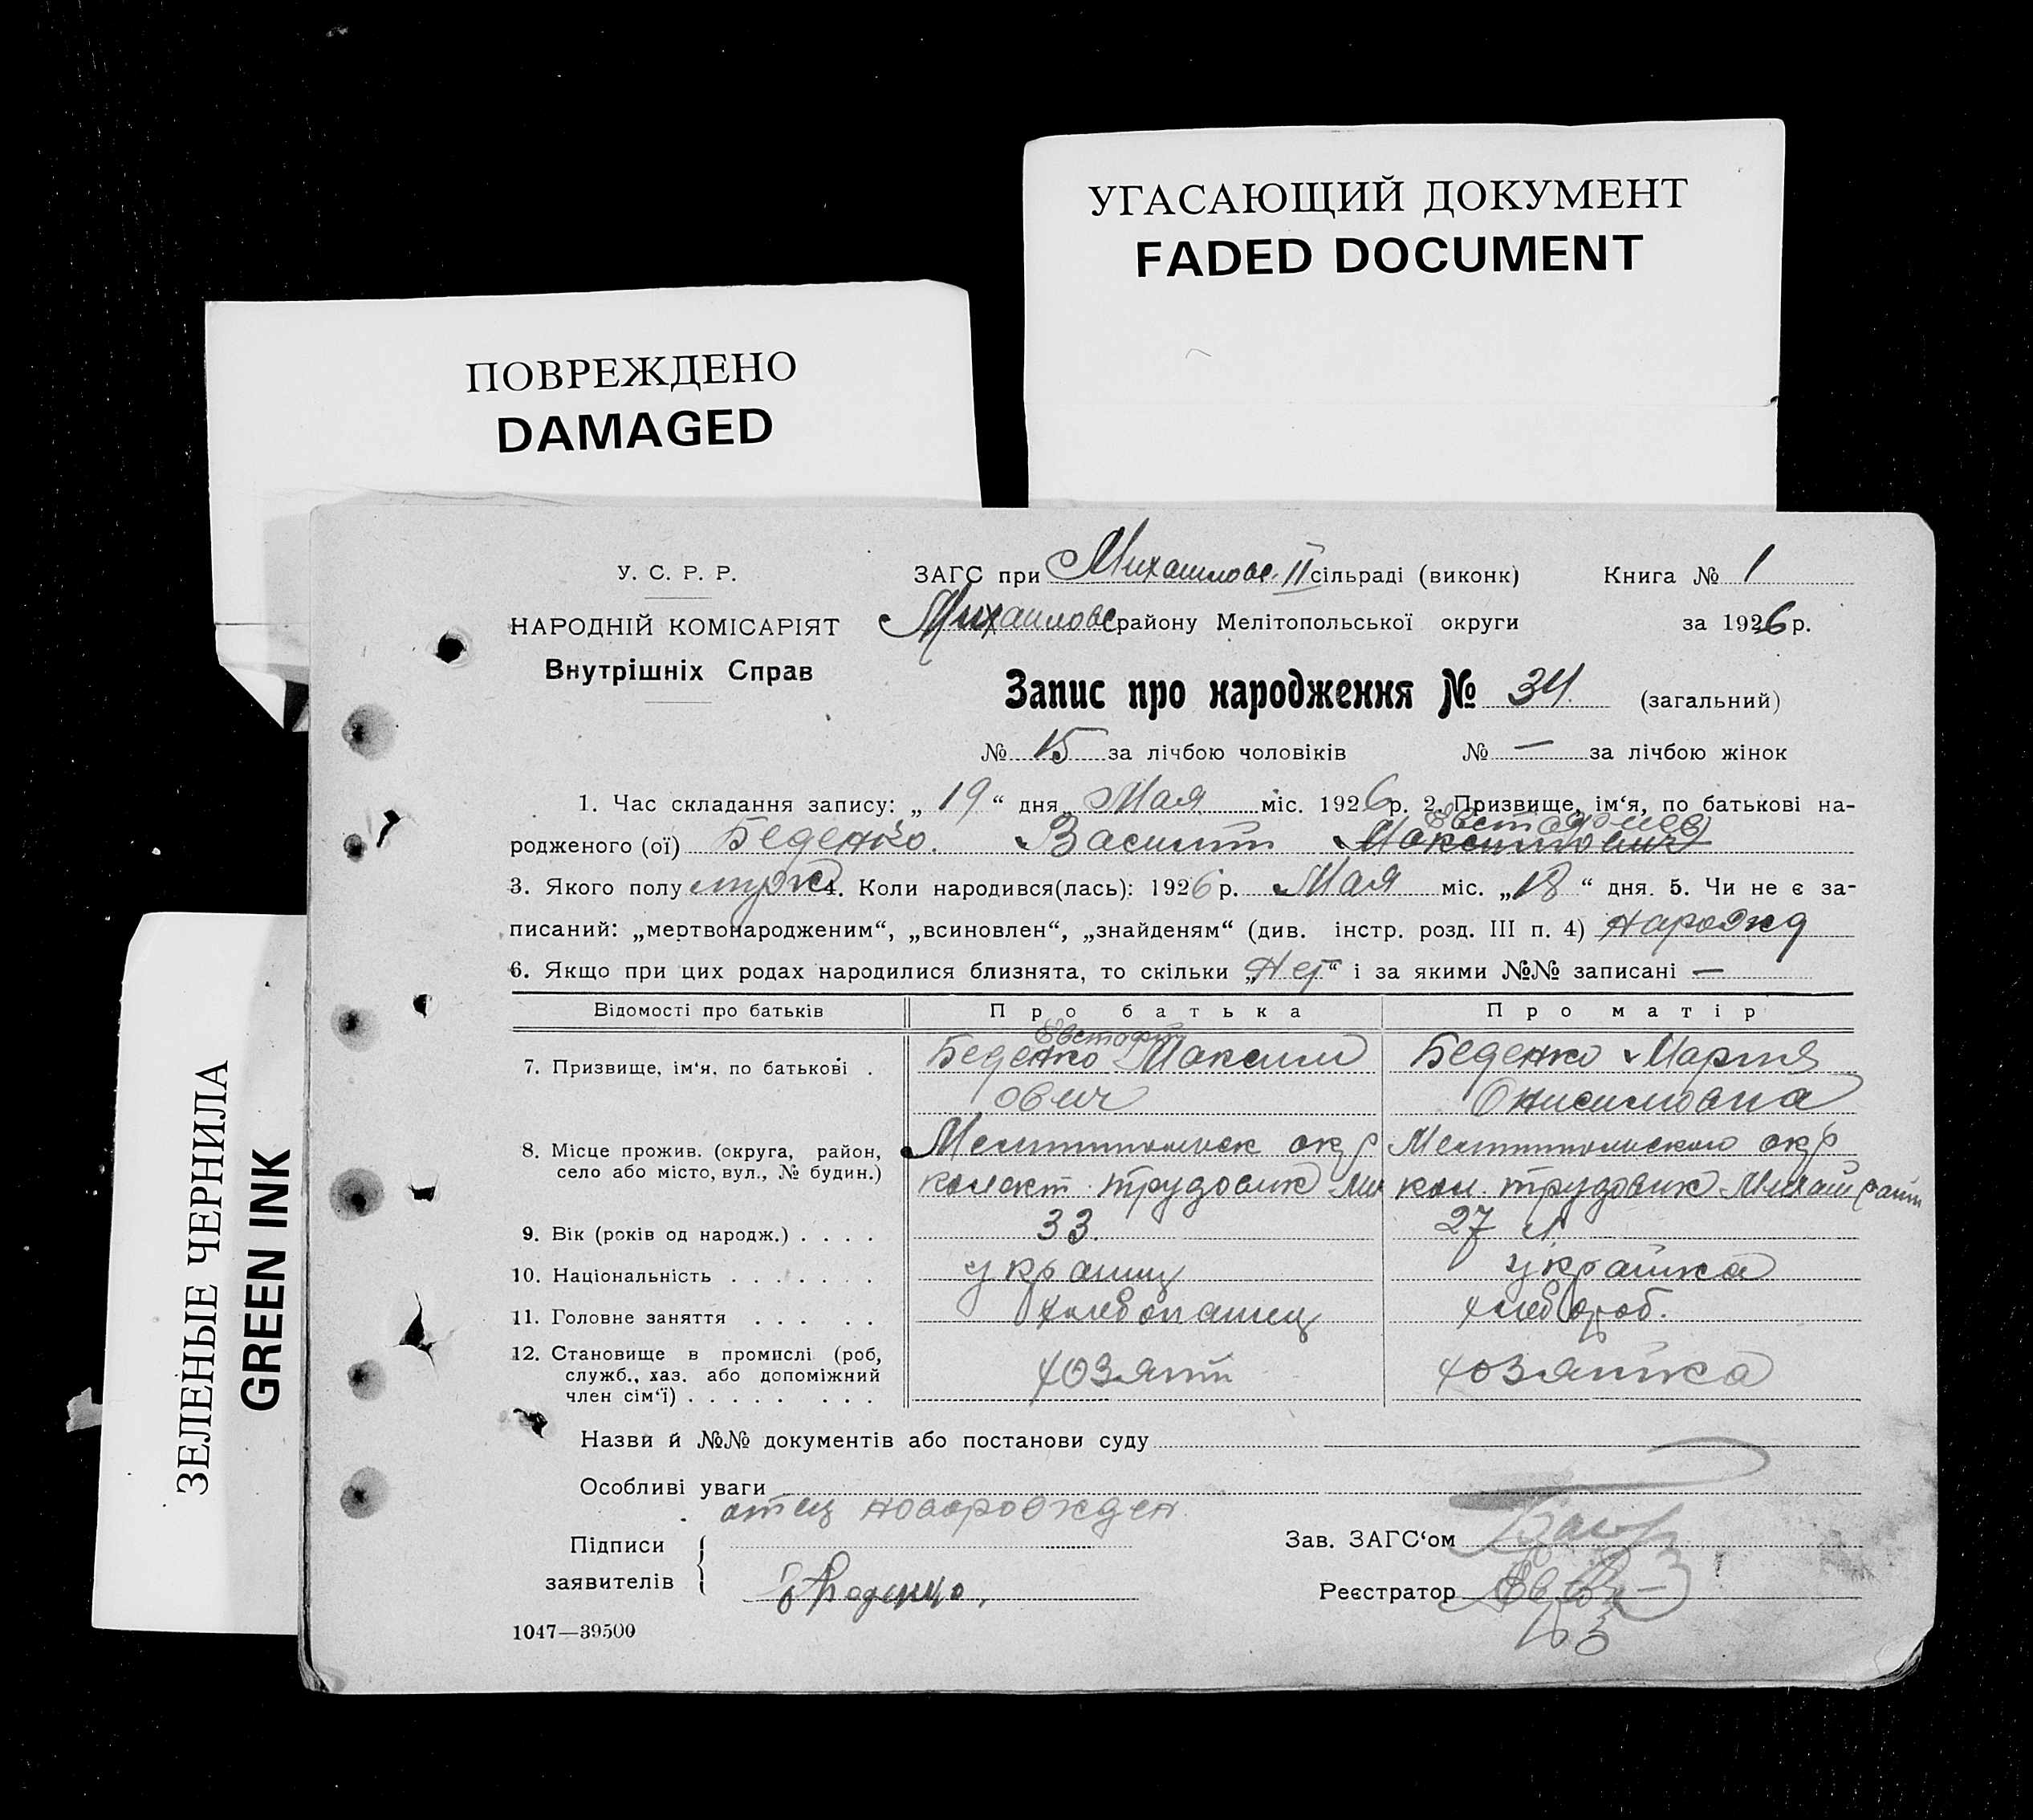 УГАСАЮЩИЙ ДОКУМЕНТ
FADED DOCUMENT
ПОВРЕЖДЕНО
DAMAGED
ЗЕЛЕНЫЕ ЧЕРНИЛА
GREEN INK
У. С. Р. Р.
НАРОДНІЙ КОМІСАРІЯТ
Внутрішніх Справ
ЗАГС при Михайлове. II сільраді (виконк) Книга № 1
Михайловс району Мелітопольської округи за 1926 р.
Запис про народження № 34. (загальний)
№ 15 за лічбою чоловіків № — за лічбою жінок
1. Час складання запису: „ 19 “ дня Мая міс. 1926 р. 2. Призвище, ім‘я, по батькові на-
Евстафиев
родженого (ої) Беденко. Василий Максимович
3. Якого полу муж 4. Коли народився(лась): 1926 р. Мая міс. „18 “ дня. 5. Чи не є за-
писаний: „мертвонародженим“, „всиновлен“, „знайденям“ (див. інстр. розд. III п. 4) нарожд
6. Якщо при цих родах народилися близнята, то скільки „Нет“ і за якими №№ записані —
Відомості про батьків Про батька Про матір
Евстафий
7. Призвище, ім‘я, по батькові . Беденко Максим Беденко Мария
ович Онисимовна
8. Місце прожив. (округа, район, Мелитопольск окр Мелитопольского окр
село або місто, вул., № будин.) колект трудовик Ми кол. трудовик Михай райн
9. Вік (років од народж.) . . . . 33. 27 л
10. Національність . . . . . . . украинц украинка
11. Головне заняття . . . . . хлебопашец хлебороб.
12. Становище в промислі (роб, хозяин хозяйка
служб., хаз. або допоміжний
член сім‘ї) . . . . . . . .
Назви й №№ документів або постанови суду
Особливі уваги
отец новорожден
Підписи
заявителів
Зав. ЗАГС‘ом
Реєстратор
1047—39500